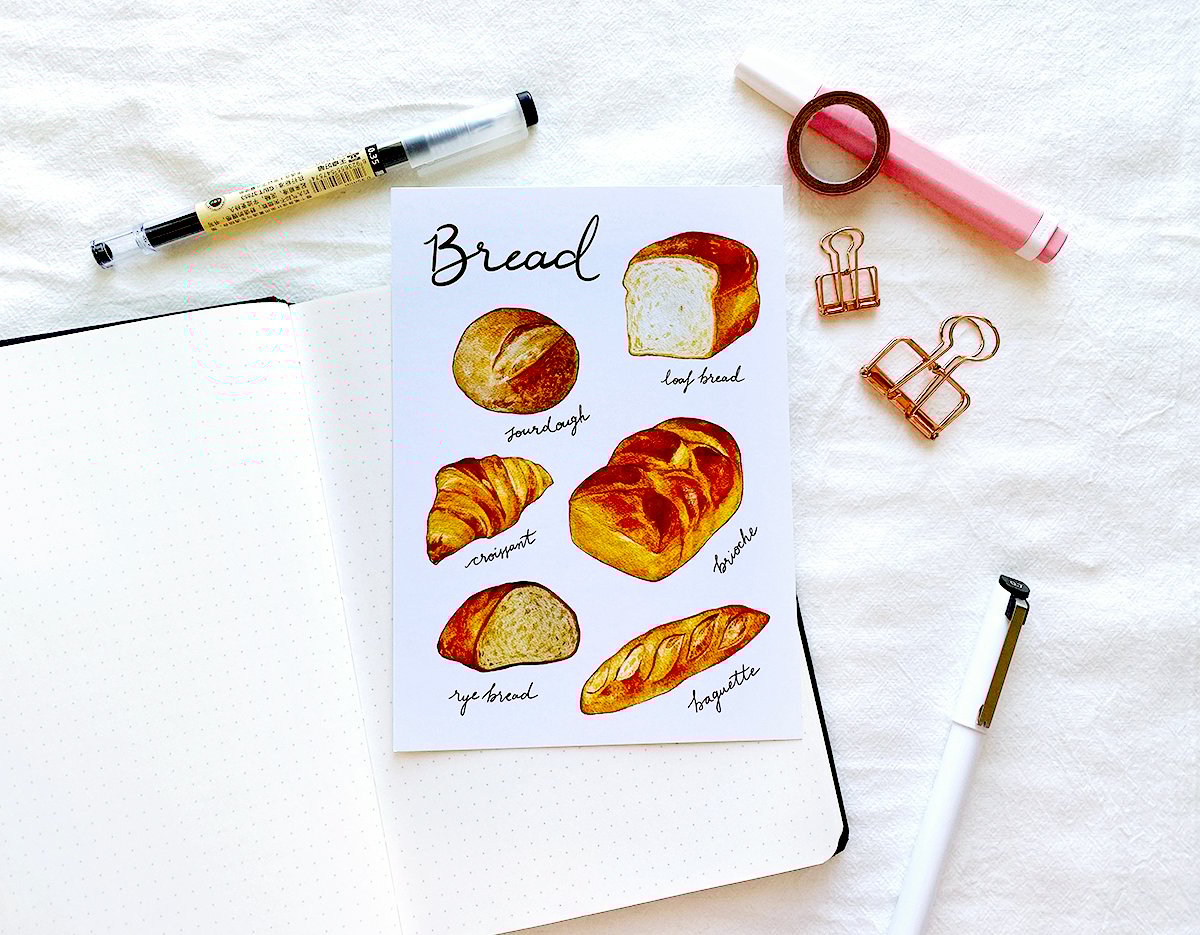 Bread
loaf bread
sourdough
croissant
brioche
rye bread
baguette
0.35